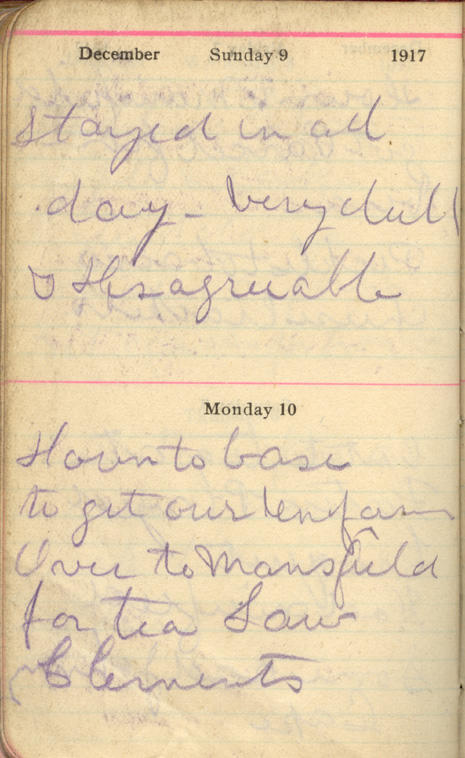 December Sunday 9 1917
Stayed in all
day - very dull
& disagreeable
Monday 10
Down to base
to get our
Over to Mansfield
for tea Saw
Clements